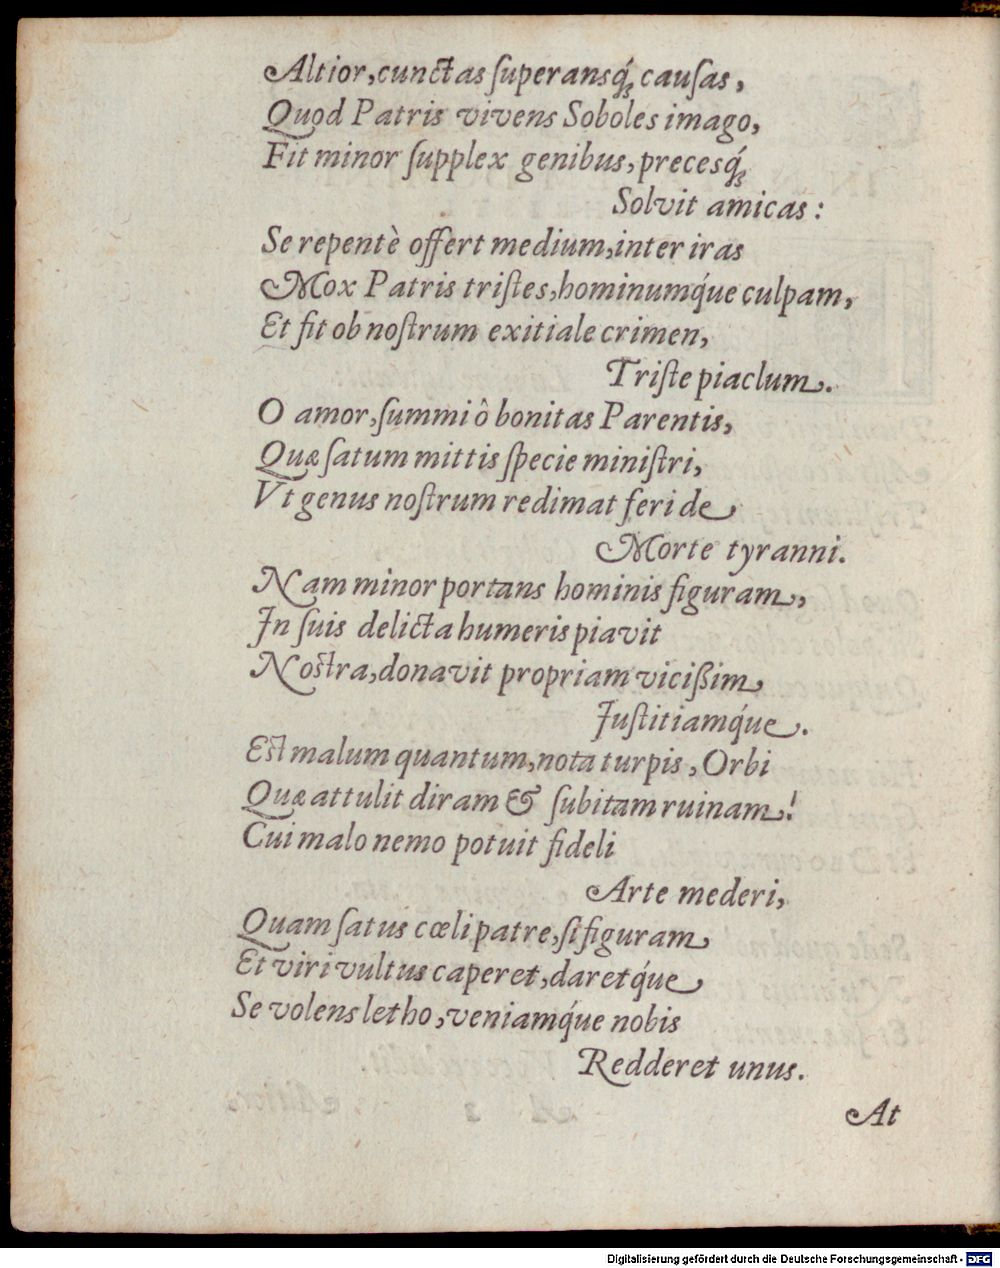 Altior, cunctas ſuperansq́ꝫ cauſas,
Quod Patris vivens Soboles imago,
Fit minor ſupplex genibus, precesq́ꝫ
Solvit amicas:
Se repentè offert medium, inter iras
Mox Patris triſtes, hominumq́ue culpam,
Et fit ob noſtrum exitiale crimen,
Triſte piaclum.
O amor, ſummi ô bonitas Parentis,
Quæ ſatum mittis ſpecie miniſtri,
Vt genus noſtrum redimat feri de
Morte tyranni.
Nam minor portans hominis figuram,
In ſuis delicta humeris piavit
Noſtra, donavit propriam viciſſim
Juſtitiamq́ue.
Eſt malum quantum, nota turpis, Orbi
Quæ attulit diram & ſubitam ruinam!
Cui malo nemo potuit fideli
Arte mederi,
Quam ſatus cœli patre, ſi figuram
Et viri vultus caperet, daretq́ue
Se volens letho, veniamq́ue nobis
Redderet unus.
At
Digitalisierung gefördert durch die Deutsche Forschungsgemeinschaft - DFG